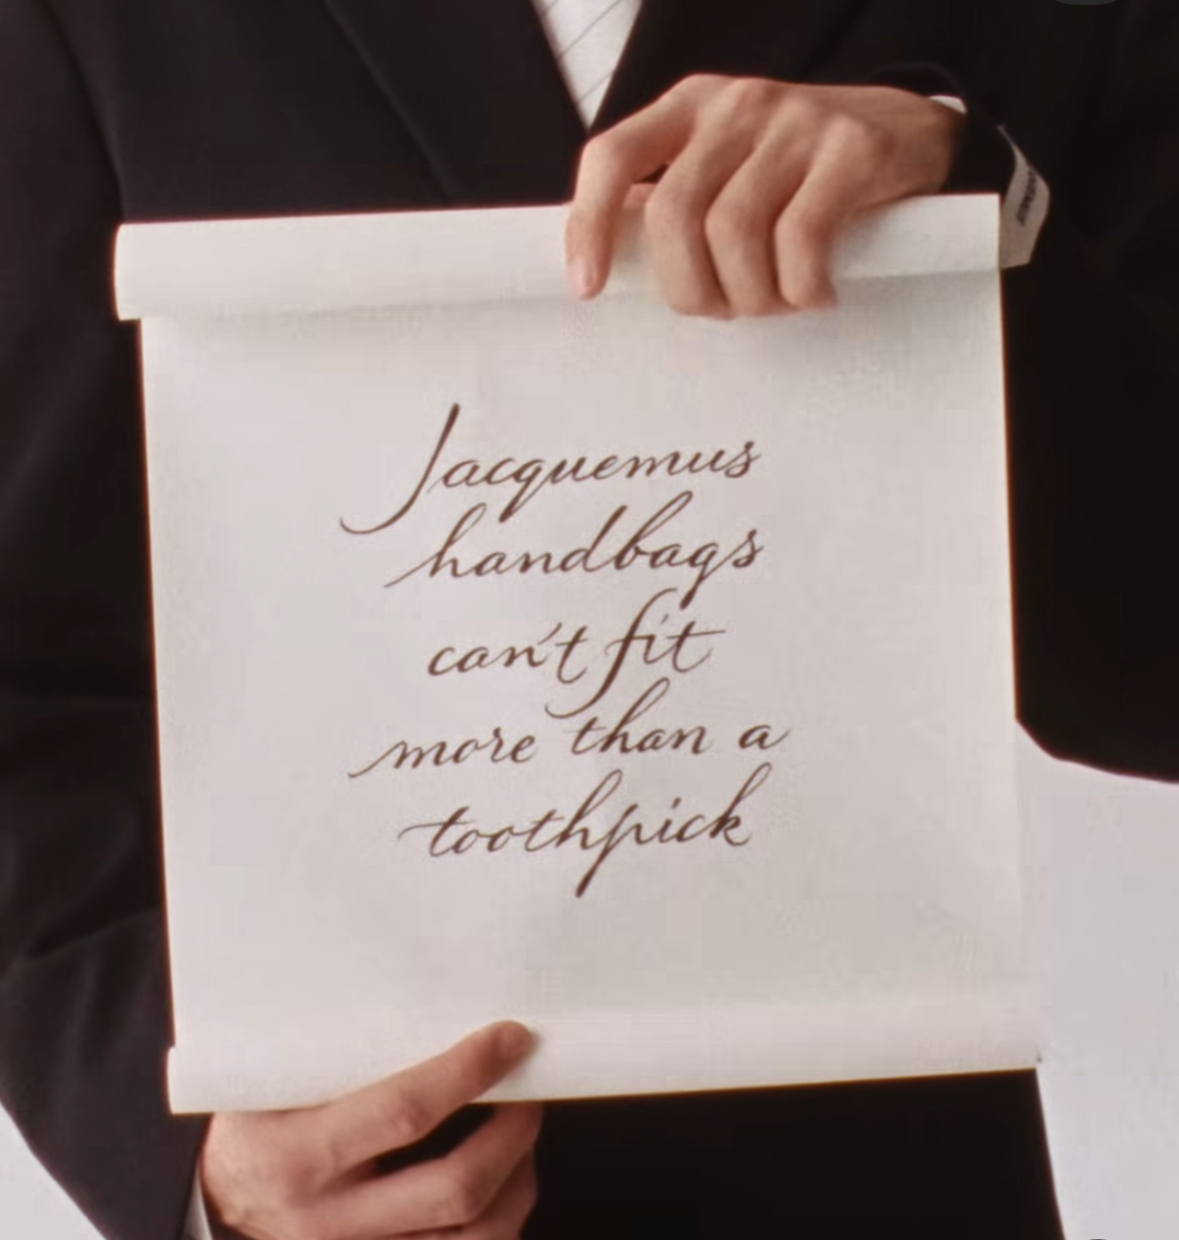 Jacquemus
handbags
can't fit
more than a
toothpick